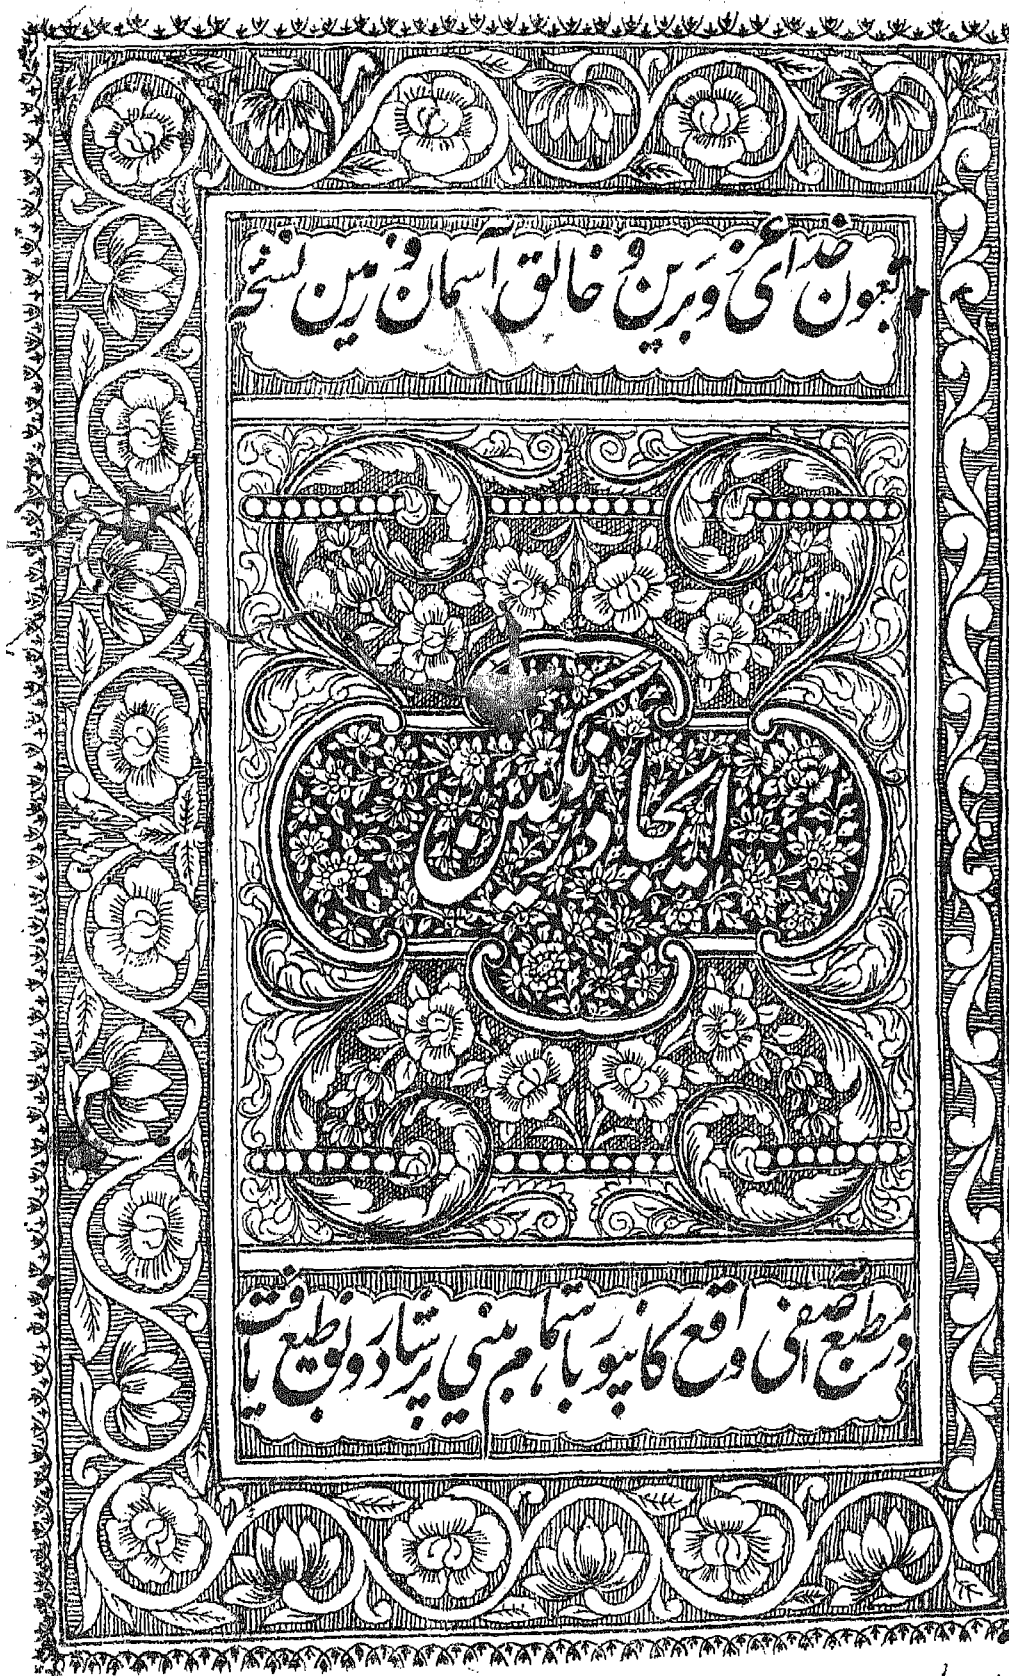 بعون خدای عز و برین و خالق آسمان و زمین نسخهٔ
ایجاد رنگین
در مطبع آصفی واقع کانپور باهتمام بینی پرشاد رونق طبع یافت